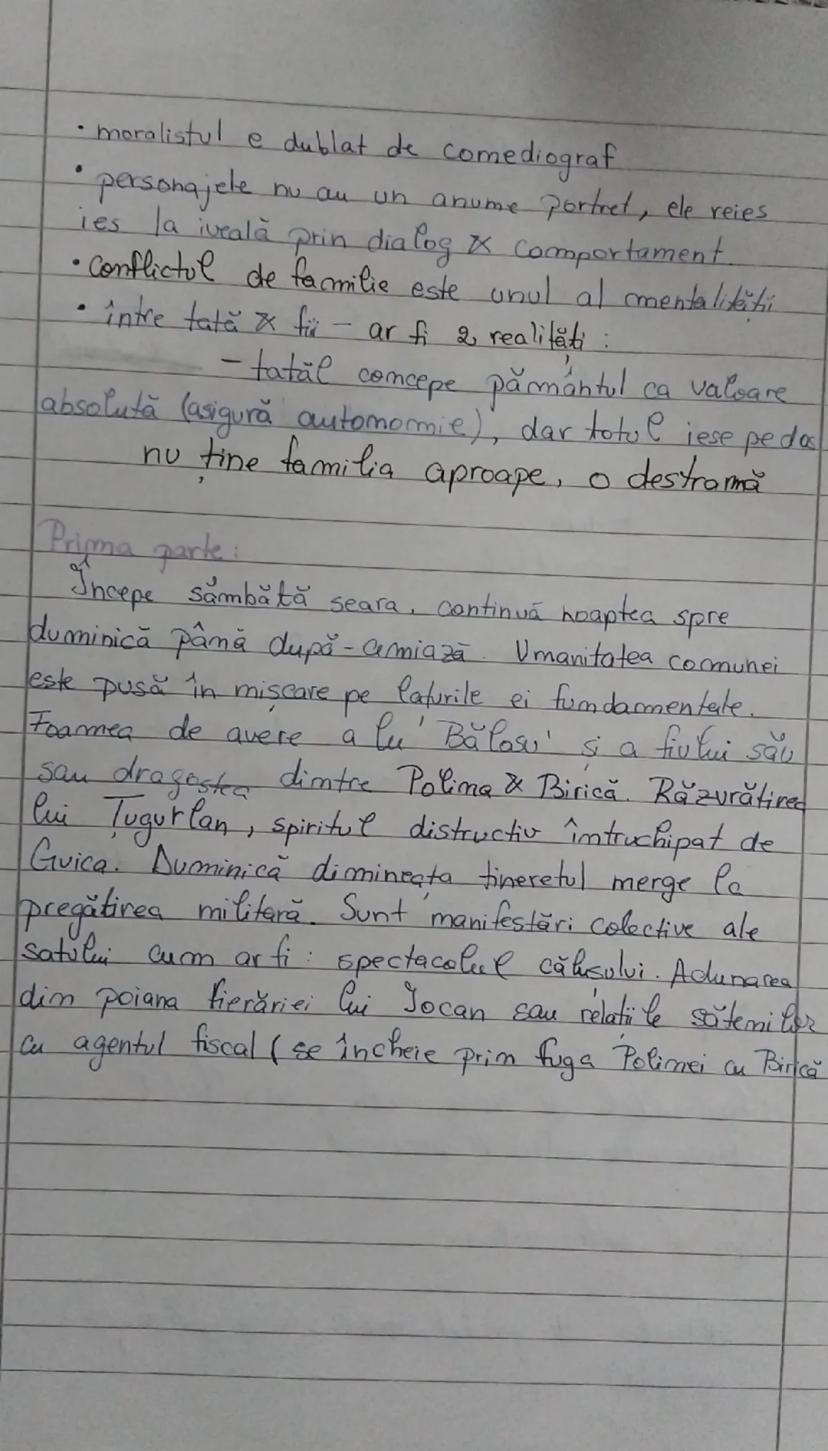 • moralistul e dublat de comediograf
• personajele nu au un anume portret, ele reies
ies la iveală prin dialog & comportament
• conflictul de familie este unul al mentalității
• între tată & fii - ar fi 2 realități:
- tatăl concepe pământul ca valoare
absolută (asigură autonomie), dar totul iese pe dos
nu ține familia aproape, o destramă
Prima parte:
Începe sâmbătă seara, continuă noaptea spre
duminică până după-amiază. Umanitatea comunei
este pusă în mișcare pe laturile ei fundamentale.
Foamea de avere a lu' Bălosu' și a fiului său
sau dragostea dintre Polina & Birică. Răzvrătirea
lui Țugurlan, spiritul distructiv întruchipat de
Guica. Duminică dimineața tineretul merge la
pregătirea militară. Sunt manifestări colective ale
satului cum ar fi: spectacolul călușului. Adunarea
din poiana fierăriei lui Iocan sau relațiile sătenilor
cu agentul fiscal (se încheie prin fuga Polinei cu Birică